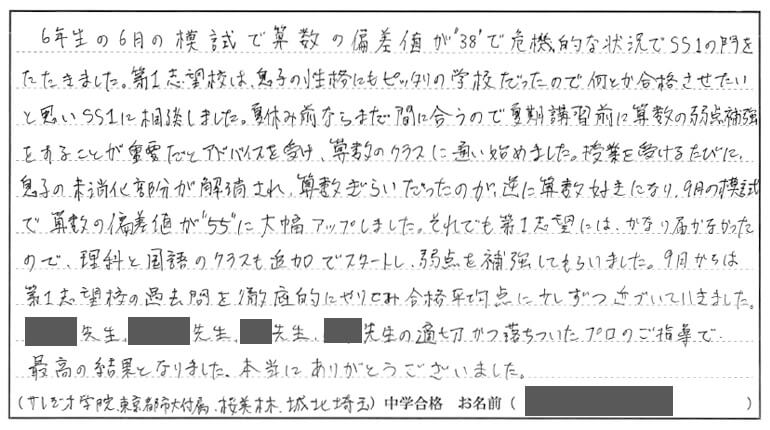 6年生の6月の模試で算数の偏差値が"38"で危機的な状況でSS1の門を
たたきました。第1志望校は、息子の性格にもピッタリの学校だったので何とか合格させたい
と思いSS1に相談しました。夏休み前ならまだ間に合うので夏期講習前に算数の弱点補強
をすることが重要だとアドバイスを受け、算数のクラスに通い始めました。授業を受けるたびに、
息子の未消化部分が解消され、算数ぎらいだったのが、逆に算数好きになり、9月の模試
で算数の偏差値が"55"に大幅アップしました。それでも第1志望には、かなり届かなかった
ので、理科と国語のクラスも追加でスタートし、弱点を補強してもらいました。9月からは
第1志望校の過去問を徹底的にやりこみ合格平均点に少しずつ近づいていきました。
先生、先生、先生、先生の適切かつ落ちついたプロのご指導で、
最高の結果となりました。本当にありがとうございました。
(サレジオ学院、東京都市大付属、桜美林、城北埼玉)中学合格 お名前( )